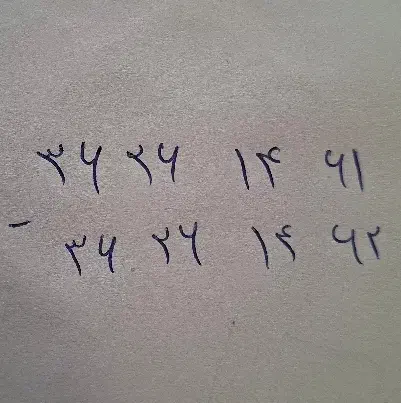 ۳۶ ۲۶ ۱۴ ۶۱
- ۳۶ ۲۶ ۱۴ ۶۲